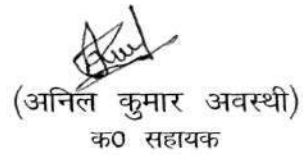 (अनिल कुमार अवस्थी)
क0 सहायक